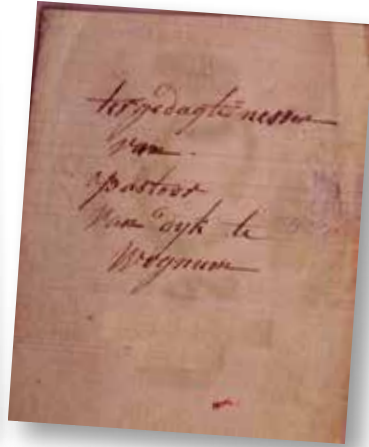 ter gedagtenesse
van
pastoor
van Dyk te
Wognum